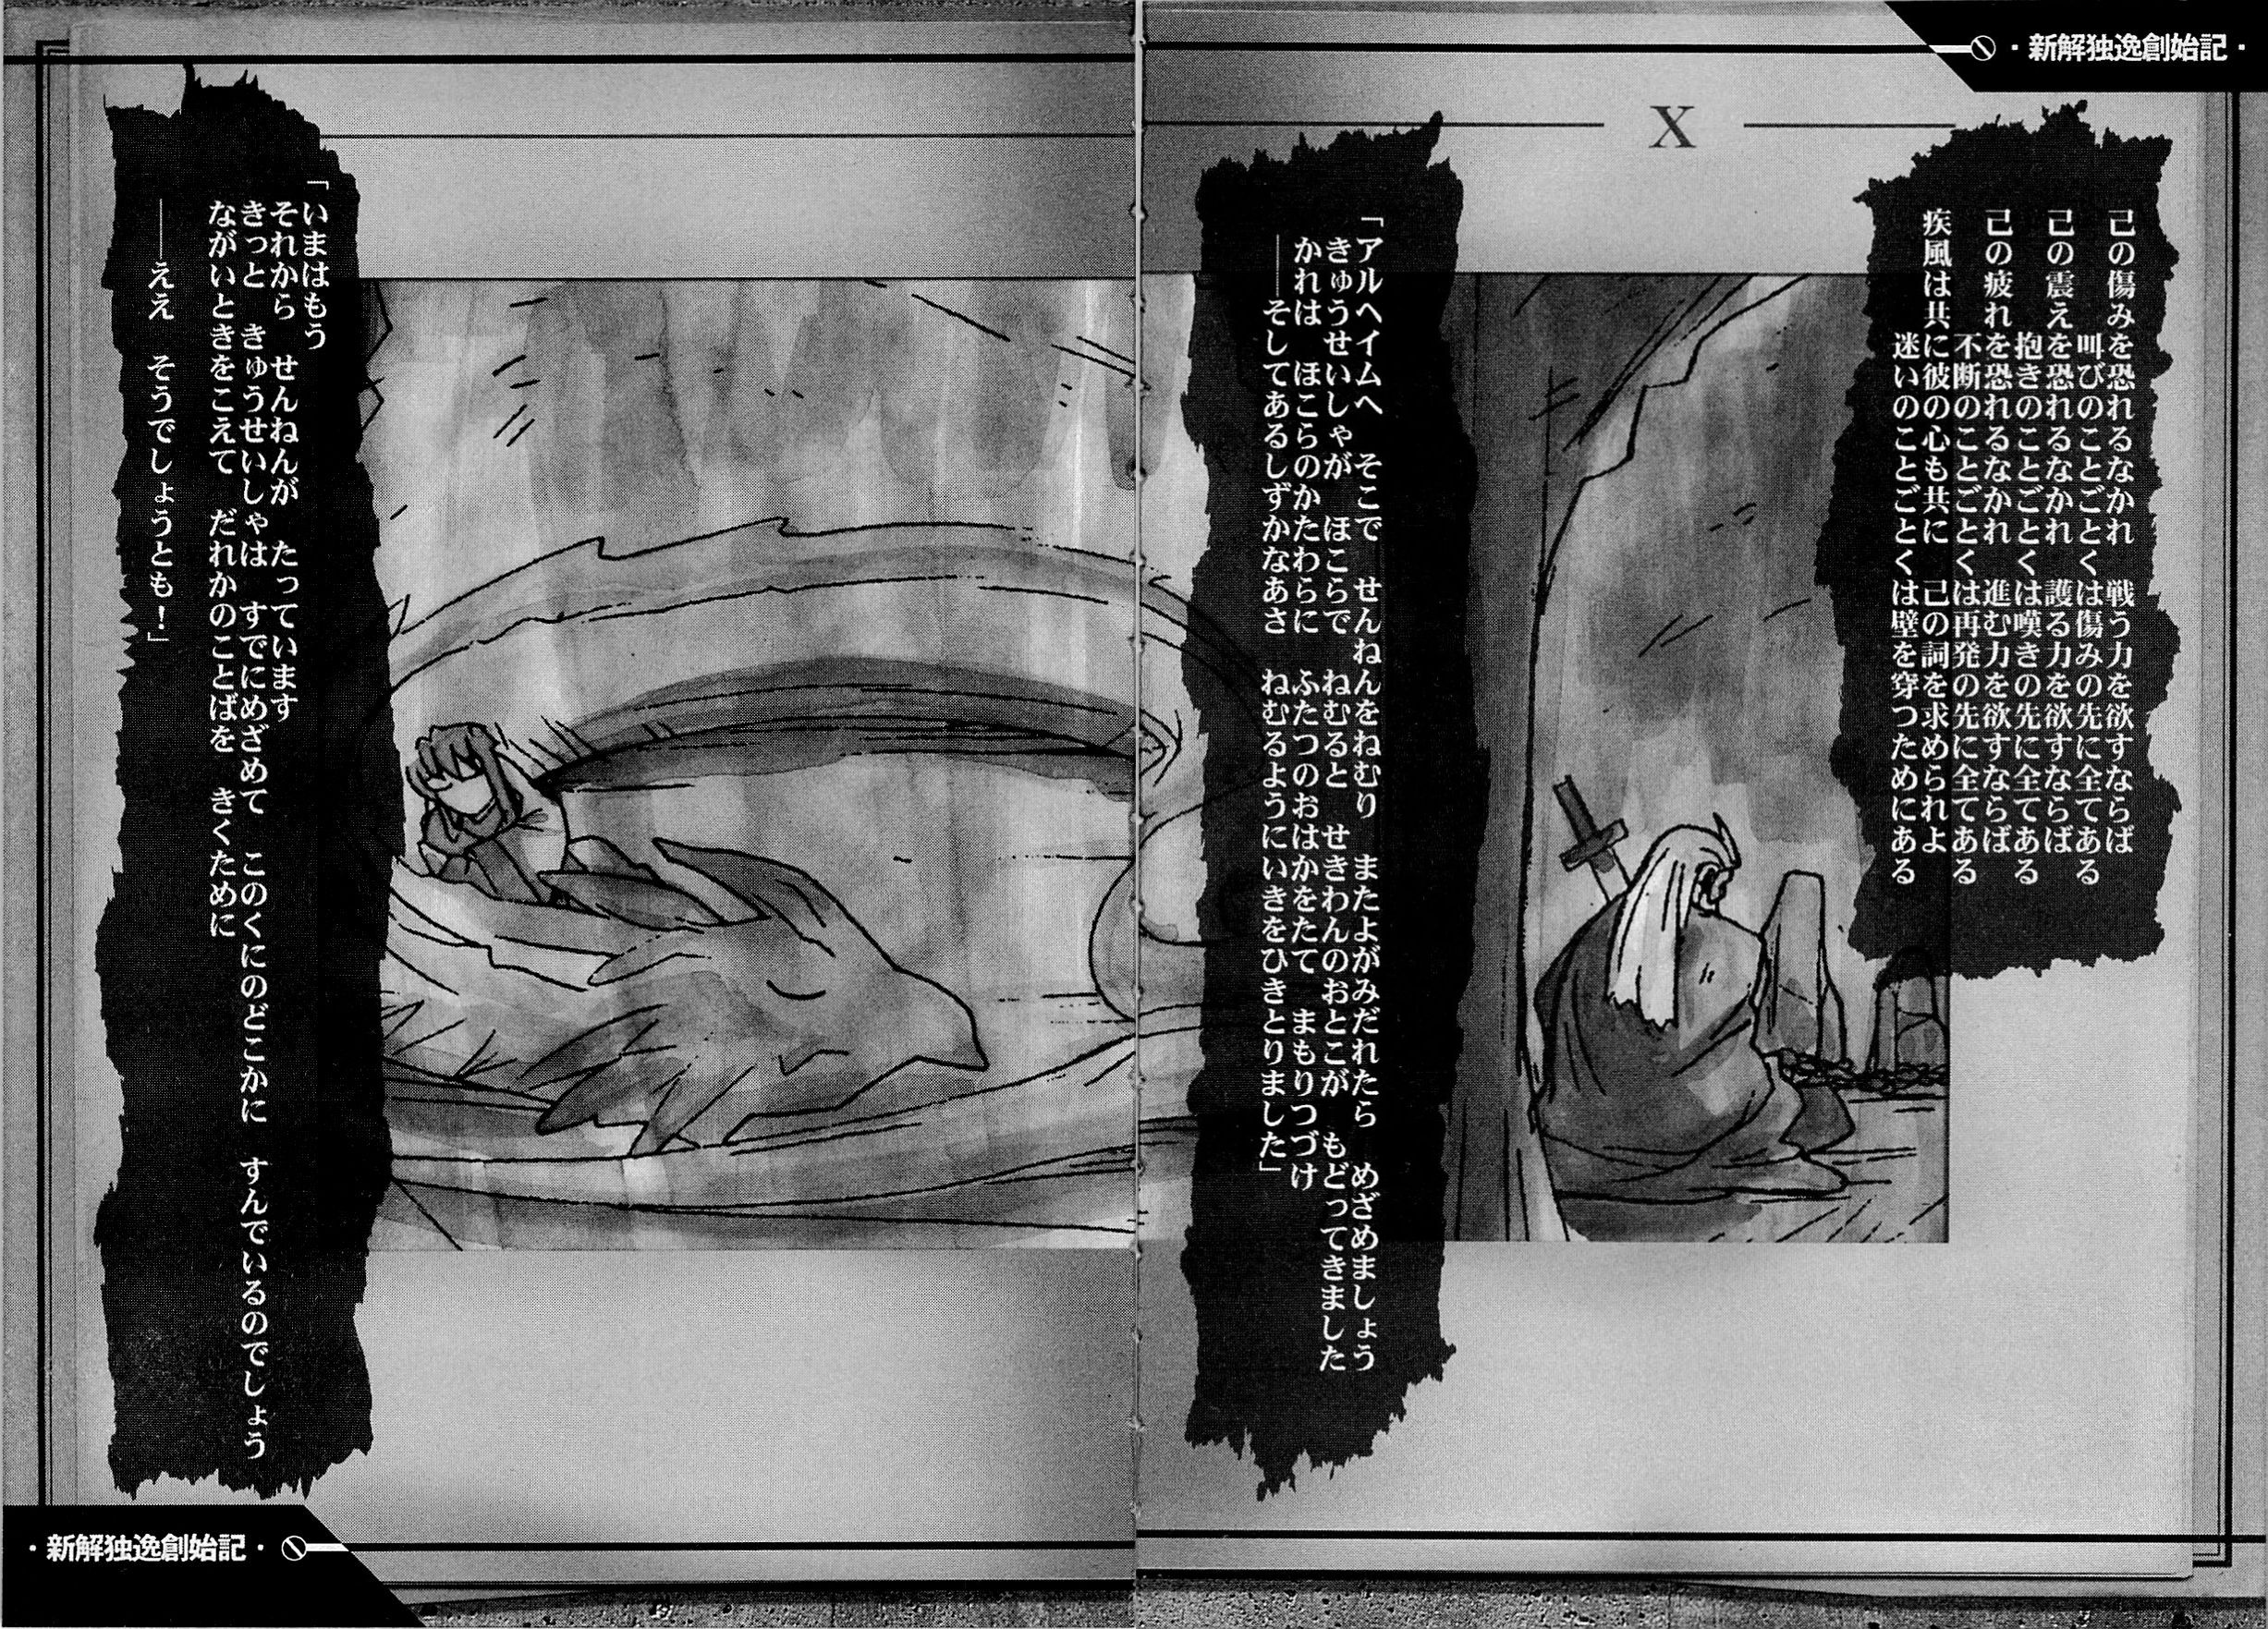 ・新解独逸創始記・
X
己の傷みを恐れるなかれ　戦う力を欲すならば
叫びのことごとくは傷みの先に全てある
己の震えを恐れるなかれ　護る力を欲すならば
抱きのことごとくは嘆きの先に全てある
己の疲れを恐れるなかれ　進む力を欲すならば
不断のことごとくは再発の先に全てある
疾風は共に彼の心も共に　己の詞を求められよ
迷いのことごとくは壁を穿つためにある
「アルヘイムへ　そこで　せんねんをねむり　またよがみだれたら　めざめましょう
きゅうせいしゃが　ほこらで　ねむると　せきわんのおとこが　もどってきました
かれは　ほこらのかたわらに　ふたつのおはかをたて　まもりつづけ
――そしてあるしずかなあさ　ねむるようにいきをひきとりました」
「いまはもう
それから　せんねんが　たっています
きっと　きゅうせいしゃは　すでにめざめて　このくにのどこかに　すんでいるのでしょう
ながいときをこえて　だれかのことばを　きくために
――ええ　そうでしょうとも！」
・新解独逸創始記・